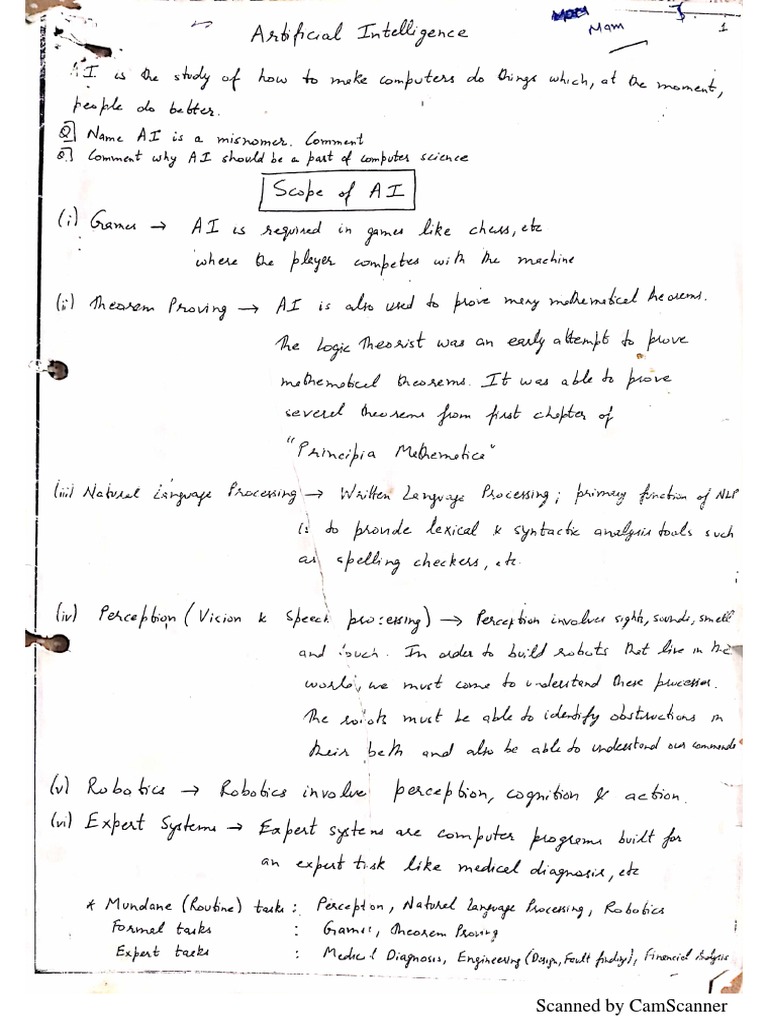 Artificial Intelligence
Mam
1
AI is the study of how to make computers do things which, at the moment,
people do better.
Q] Name AI is a misnomer. Comment
Q.] Comment why AI should be a part of computer science
Scope of AI
(i) Games → AI is required in games like chess, etc
where the player competes with the machine
(ii) Theorem Proving → AI is also used to prove many mathematical theorems.
The Logic Theorist was an early attempt to prove
mathematical theorems. It was able to prove
several theorems from first chapter of
"Principia Mathematica"
(iii) Natural Language Processing → Written Language Processing; primary function of NLP
is to provide lexical & syntactic analysis tools such
as spelling checkers, etc.
(iv) Perception (Vision & Speech processing) → Perception involves sights, sounds, smell
and touch. In order to build robots that live in the
world, we must come to understand these processes.
The robots must be able to identify obstructions in
their path and also be able to understand our commands
(v) Robotics → Robotics involve perception, cognition & action.
(vi) Expert Systems → Expert systems are computer programs built for
an expert task like medical diagnosis, etc
* Mundane (Routine) tasks : Perception, Natural Language Processing, Robotics
Formal tasks : Games, Theorem Proving
Expert tasks : Medical Diagnosis, Engineering (Design, Fault finding), Financial Analysis
Scanned by CamScanner